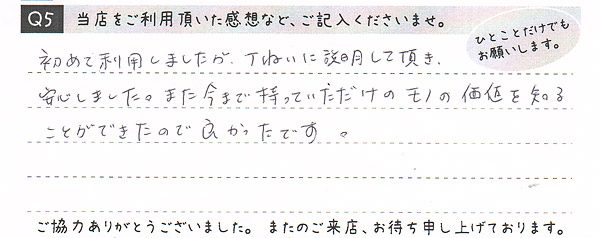 Q5 当店をご利用頂いた感想など、ご記入くださいませ。
ひとことだけでも
お願いします。
初めて利用しましたが、丁ねいに説明して頂き、
安心しました。また今まで持っていただけのモノの価値を知る
ことができたので良かったです。
ご協力ありがとうございました。またのご来店、お待ち申し上げております。